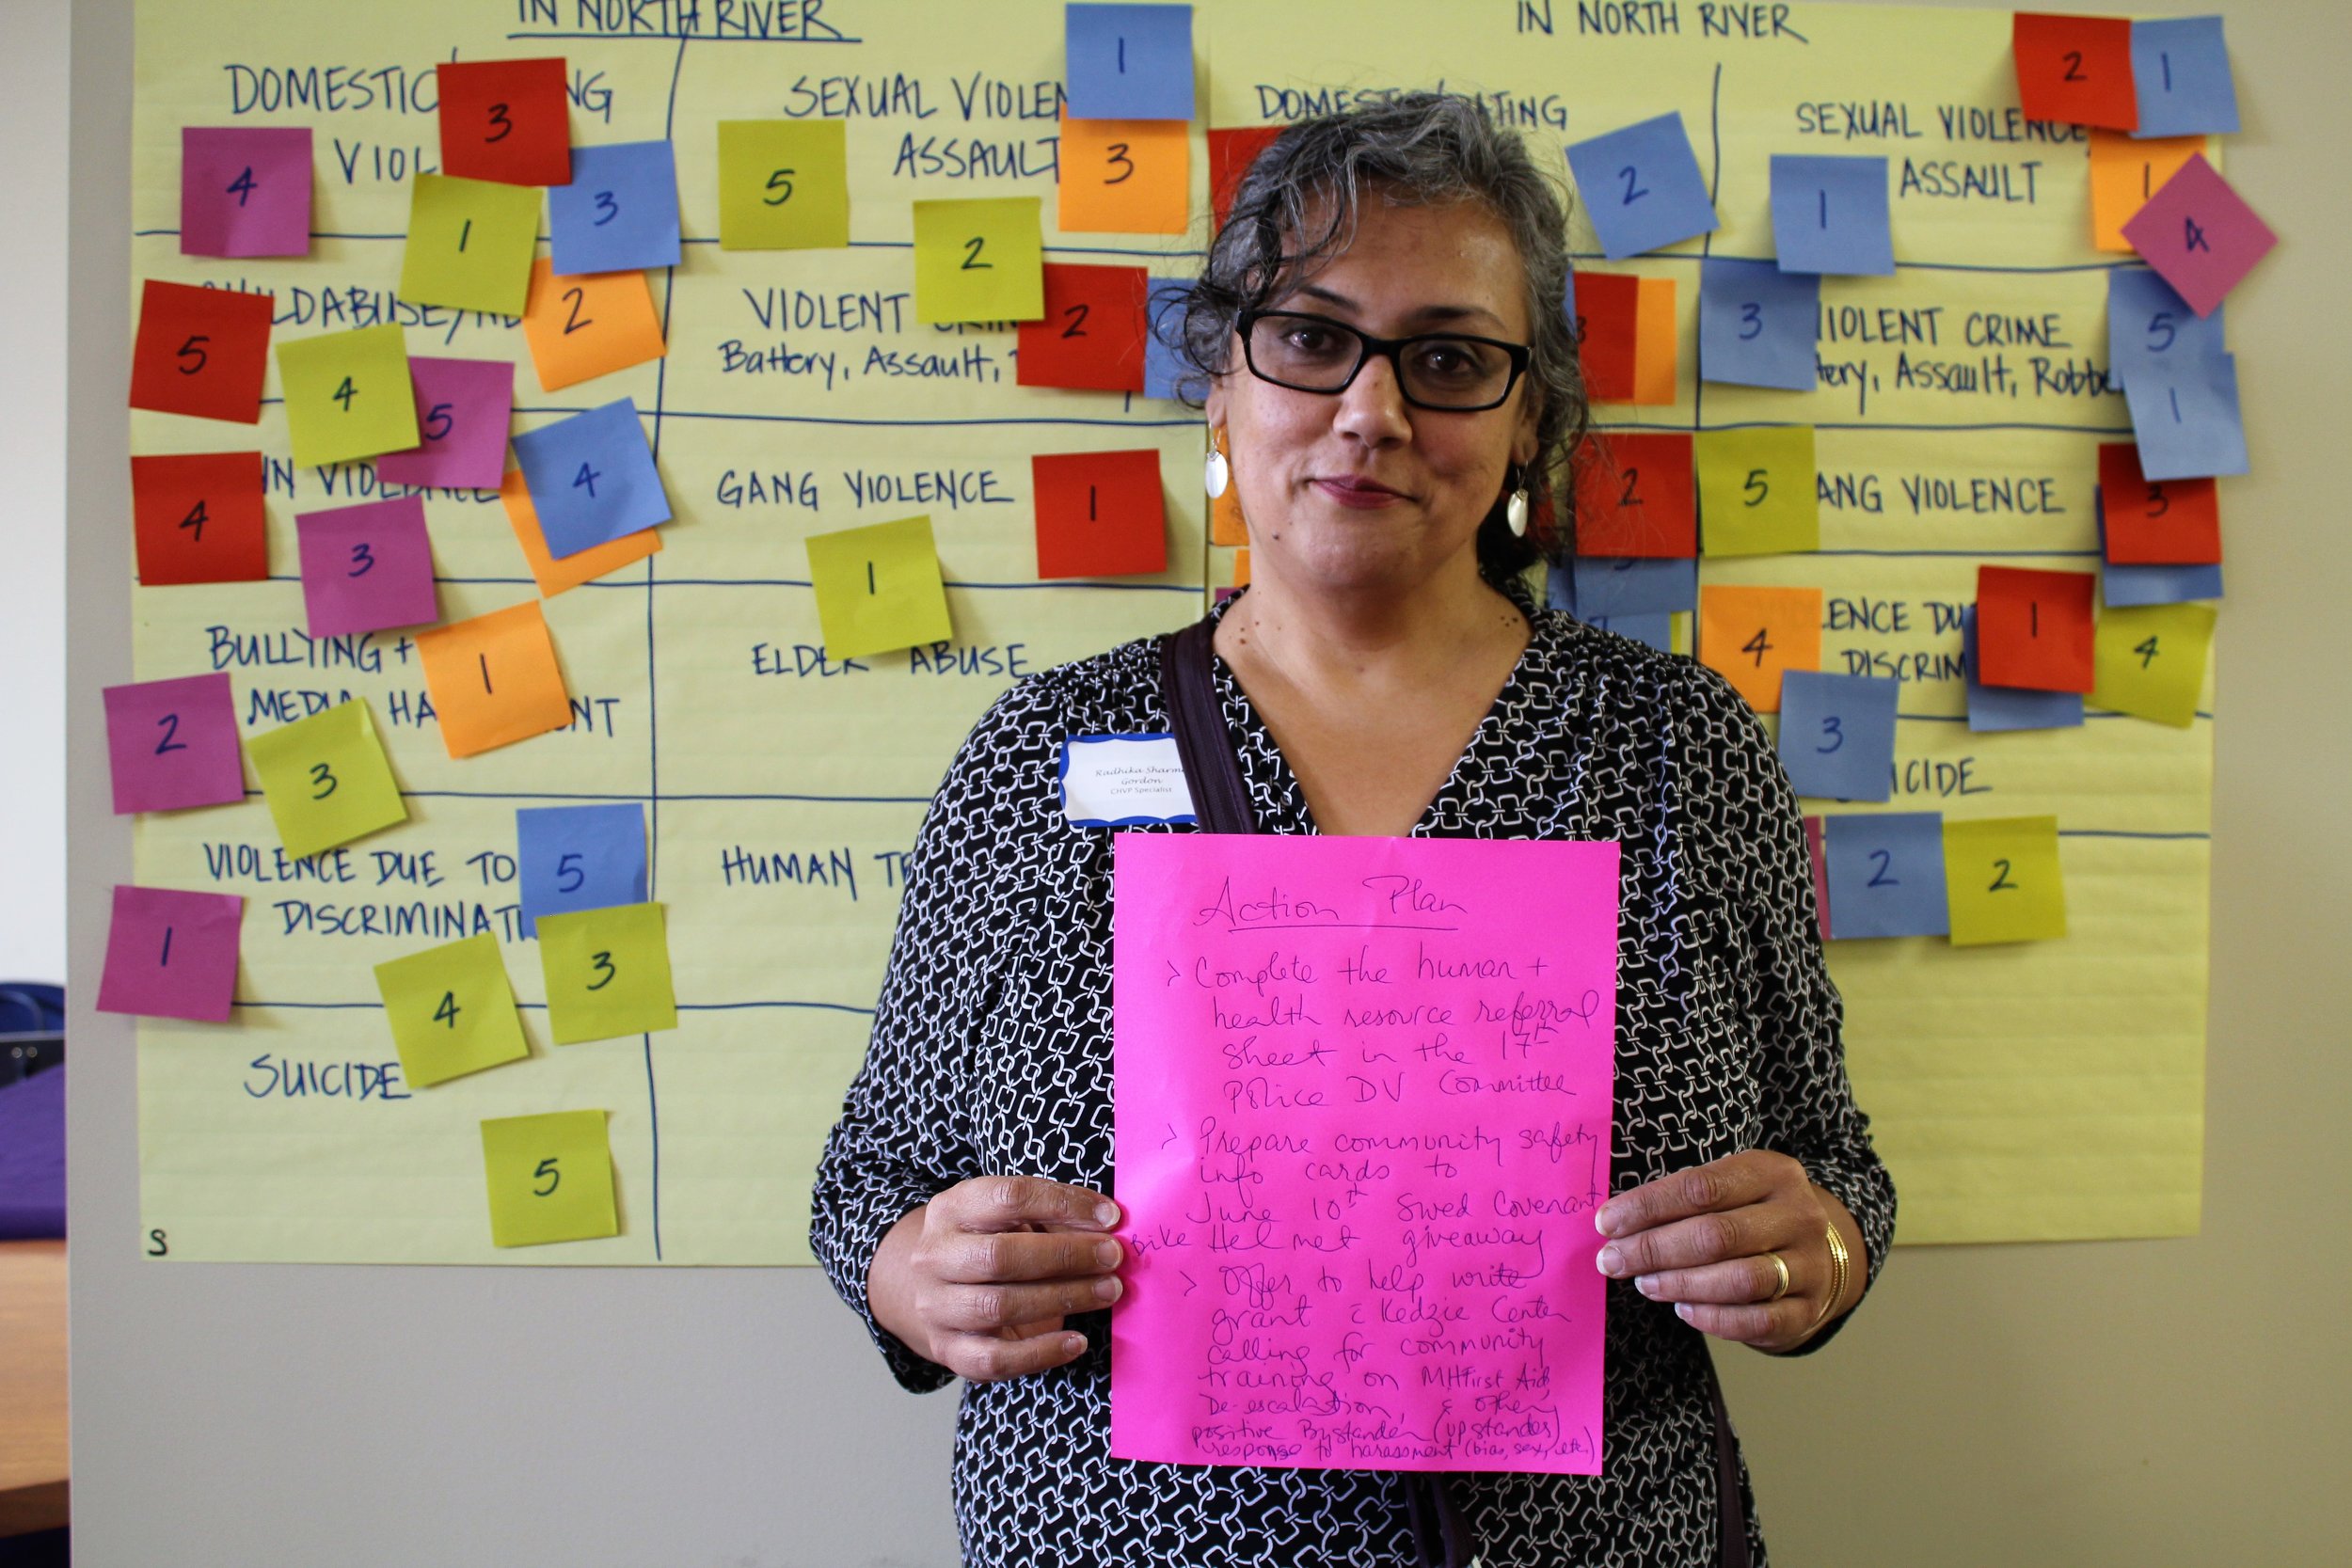 IN NORTH RIVER
DOMESTIC
NG
VIOL
3
4
1
3
SEXUAL VIOLEN
ASSAULT
1
3
5
2
HILD ABUSE/
5
4
5
2
VIOLENT
Battery, Assault,
2
1
N VIOLENCE
4
3
4
GANG VIOLENCE
1
1
BULLYING +
MEDIA HA
NT
1
2
3
ELDER ABUSE
VIOLENCE DUE TO
DISCRIMINATI
5
1
4
3
HUMAN
SUICIDE
5
S
IN NORTH RIVER
DOMESTIC
TING
2
SEXUAL VIOLENCE,
ASSAULT
2
1
1
1
4
3
3
IOLENT CRIME
tery, Assault, Robbe
5
1
2
5
ANG VIOLENCE
3
4
LENCE DU
DISCRIM
1
4
3
ICIDE
2
2
Radhika Sharma
Gordon
CHVP Specialist
Action Plan
> Complete the human +
health resource referral
sheet in the 17th
Police DV Committee
> Prepare community safety
info cards to
June 10th Swed Covenant
Bike Helmet giveaway
> Offer to help write
grant c̄ Kedzie Center
calling for community
training on MHFirst Aid,
De-escalation, & other
positive Bystander (upstander)
response to harassment (bias, sex, etc.)